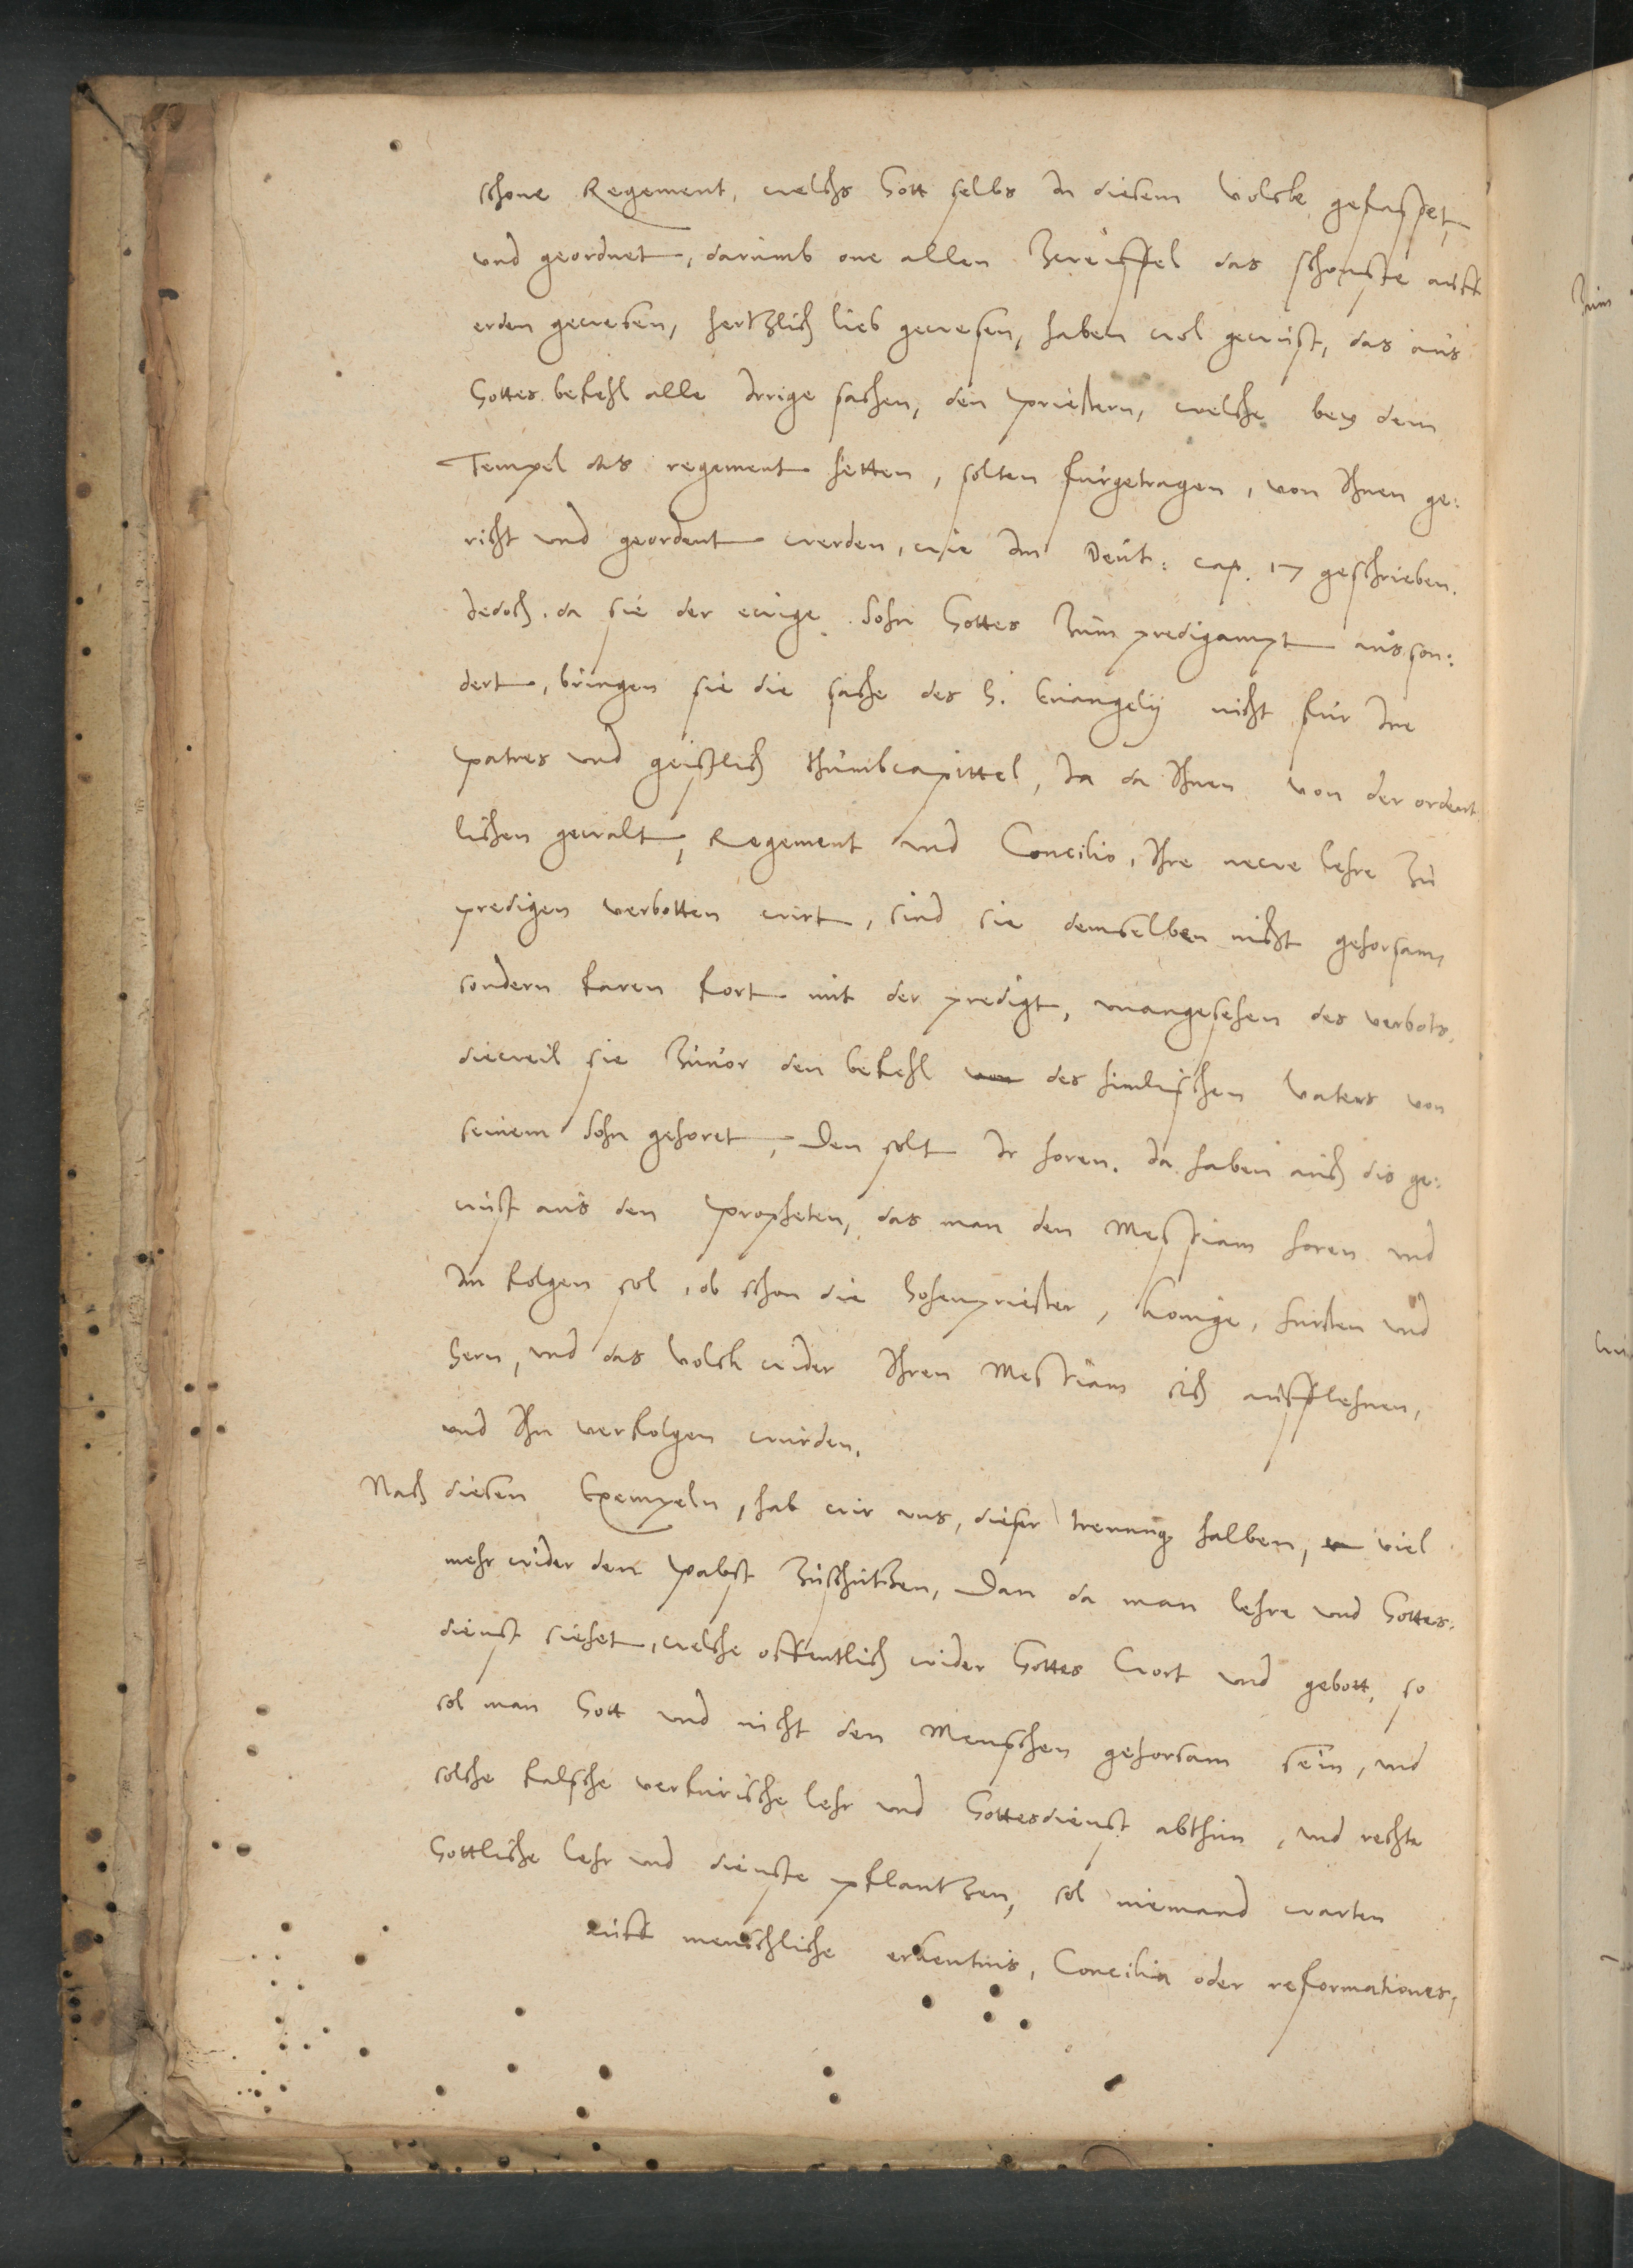 schone Regement, welchs Gott selbs in diesem volcke gefasset,
vnd geordnet, darumb one allen Zweiffel das schonste auff
erden gewesen, hertzlich lieb gewesen, haben wol gewust, das aus
Gottes befehl alle Irrige sachen, den Priestern, welche bey dem
Tempel das regement hetten, solten furgetragen, von Ihnen ge:
richt vnd geordent werden, wie Im Deut: cap. 17 geschrieben.
Iedoch da sie der ewige Sohn Gottes zum predigampt ausson:
dert, bringen sie die sache des H. Euangelij nicht fur Ire
Patres vnd geistlich thumbcapittel, Ia da Ihnen von der ordent
lichen gewalt, Regement vnd Concilio, Ihre newe lehre zu
predigen verbotten wirt, sind sie demselben nicht gehorsam,
sondern faren fort mit der predigt, vnangesehen des verbots,
dieweil sie zuuor den befehl von des himlischen Vaters von
seinem Sohn gehoret, Den solt Ir horen. Ia haben auch dis ge:
wust aus den Propheten, das man den Messiam horen vnd
Im folgen sol, ob schon die Hohenpriester, Konige, fursten vnd
Hern, vnd das Volck wider Ihren Messiam sich aufflehnen,
vnd Ihn verfolgen wurden.
Nach diesen Exempeln, hab wir vns, dieser trenung halben, viel
mehr wider den Pabst zuschutzen, Dan da man lehre vnd Gottes:
dienst siehet, welche offentlich wider Gottes Wort vnd gebott, so
sol man Gott vnd nicht den Menschen gehorsam sein, vnd
solche falsche verfurische lehr vnd Gottesdienst abthun, vnd rechte
Gottliche lehr vnd dienste pflantzen, sol niemand warten
auff menschliche erkentnis, Concilia oder reformationes,